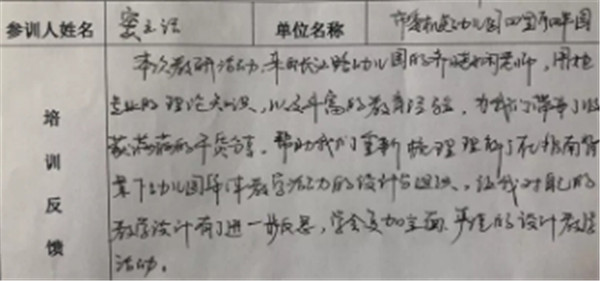 参训人姓名 单位名称 市委机关幼儿园四室所四年园
培训反馈
本次教研活动,来自长江路幼儿园的乔晓娴老师,用她
专业的理论知识,以及丰富的教育经验,为我们带来了收
获满满的干货分享。帮助我们重新梳理理解了在指南背
景下幼儿园集体教学活动的设计与组织,让我对自己的
教学设计有了进一步反思,学会更加全面、严谨的设计教学
活动。